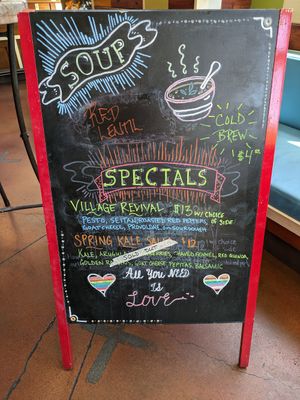 SOUP
RED
LENTIL
COLD
BREW
$4
SPECIALS
VILLAGE REVIVAL - $13 w/ choice
of side
PESTO, SEITAN, ROASTED RED PEPPERS,
GOAT CHEESE, PROVOLONE, on SOURDOUGH
SPRING KALE $12
KALE, ARUGULA, SHAVED FENNEL, RED QUINOA,
GOLDEN GOAT CHEESE, PEPITAS, BALSAMIC
All You NEED
Is
Love